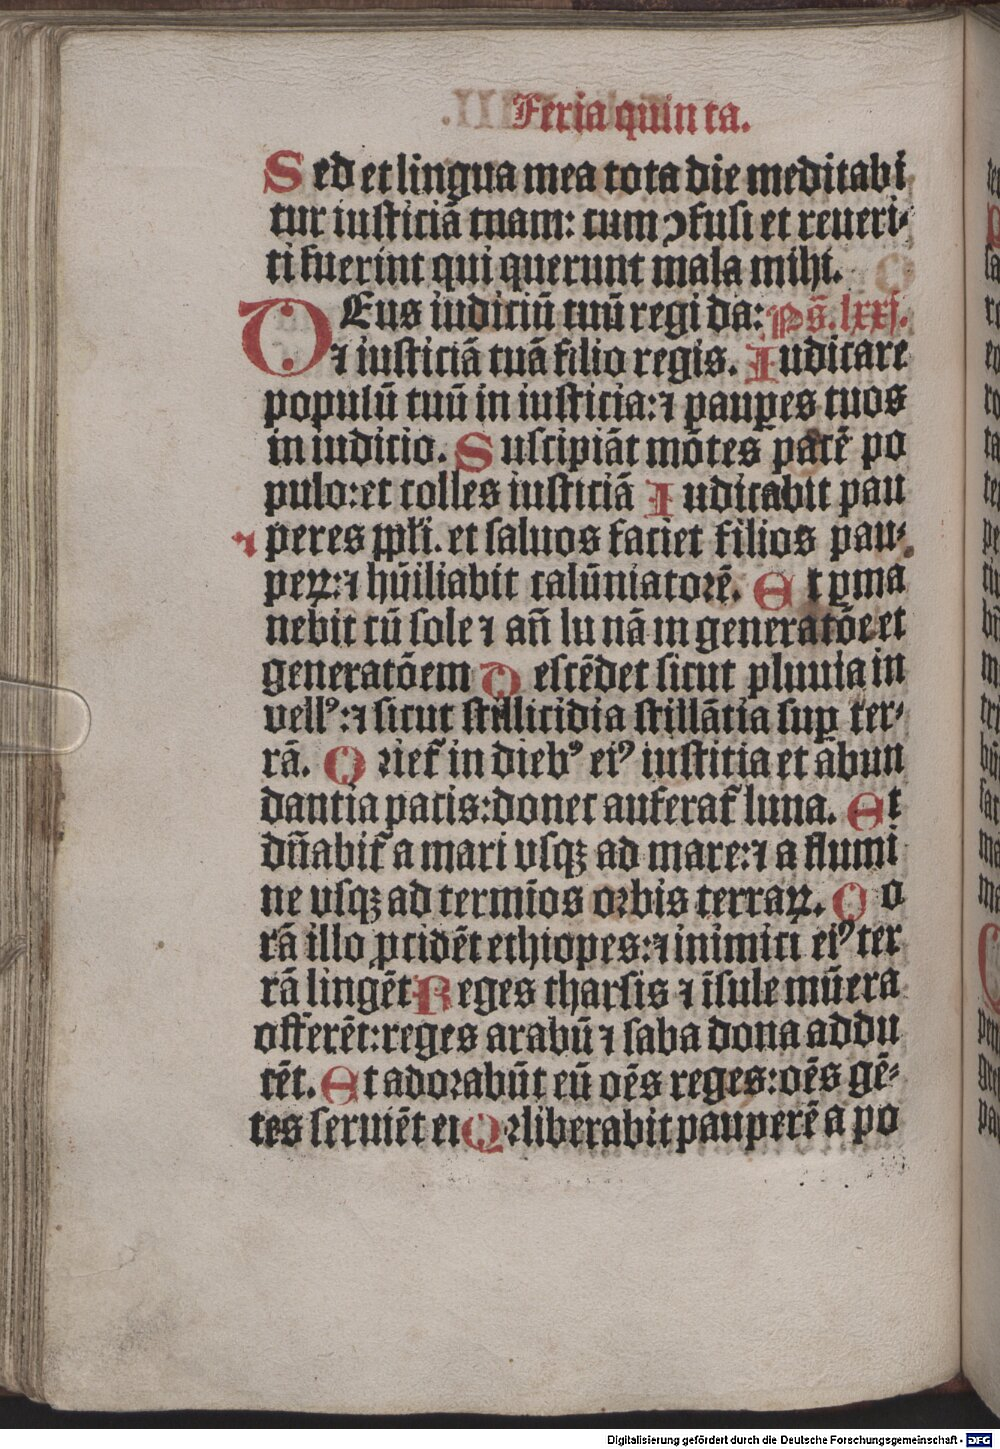 Feria quin ta.
Sed et lingua mea tota die meditabi
tur iusticiā tuam: cum ↄfusi et reueri⸗
ti fuerint qui querunt mala mihi.
DEus iudiciū tuū regi da: Ps̄. lxxj.
⁊ iusticiā tuā filio regis. Iudicare
populū tuū in iusticia: ⁊ pauꝑes tuos
in iudicio. Suscipiāt mōtes pacē po
pulo: et colles iusticiā Iudicabit pau
⁊ peres ppl̄i. et saluos faciet filios pau⸗
peꝝ: ⁊ hūiliabit calūniatorē. Et ꝑma
nebit cū sole ⁊ an̄ lu nā in generatōe et
generatōem Descēdet sicut pluuia in
vellꝰ: ⁊ sicut stillicidia stillātia suꝑ ter⸗
rā. Orief̄ in diebꝰ eiꝰ iusticia et abun
dantia pacis: donec auferat̄ luna. Et
dn̄abit̄ a mari vsqꝫ ad mare: ⁊ a flumi
ne vsqꝫ ad termīos orbis terraꝝ. Co
rā illo ꝓcidēt ethiopes: ⁊ inimici eiꝰ ter
rā lingēt Reges tharsis ⁊ īsule mūera
offerēt: reges arabū ⁊ saba dona addu
cēt. Et adorabūt eū oēs reges: oēs gē⸗
tes seruiēt ei Qr liberabit pauperē a po
Digitalisierung gefördert durch die Deutsche Forschungsgemeinschaft - DFG